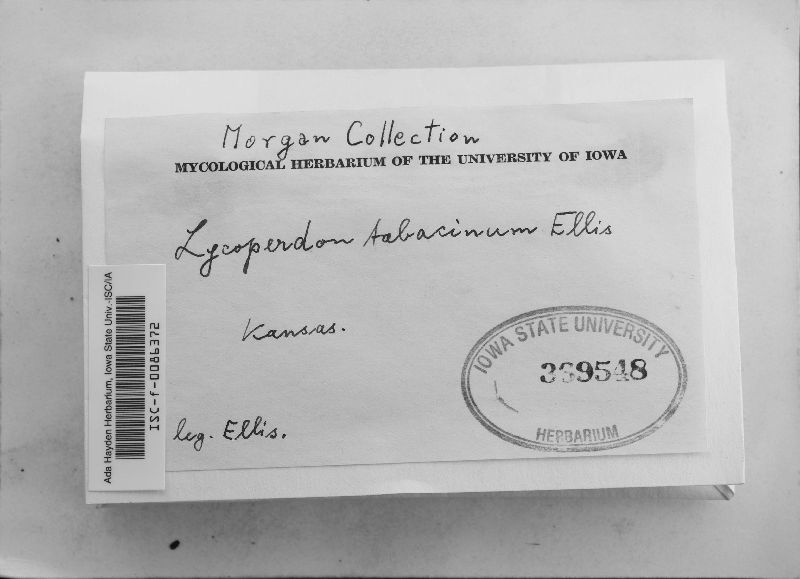 Morgan Collection
MYCOLOGICAL HERBARIUM OF THE UNIVERSITY OF IOWA
Lycoperdon tabacinum Ellis
Kansas.
IOWA STATE UNIVERSITY
369548
HERBARIUM
leg. Ellis.
Ada Hayden Herbarium, Iowa State Univ.-ISC/IA
ISC-f-0086372